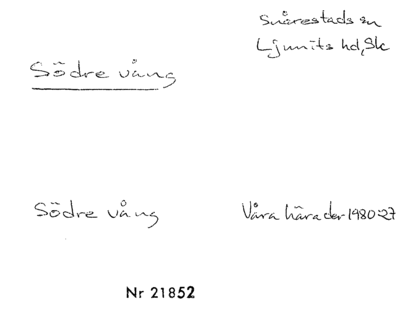 Snårestads sn
Ljunits hd, Sk
Södre vång
Södre vång Våra härader 1980:27
Nr 21852